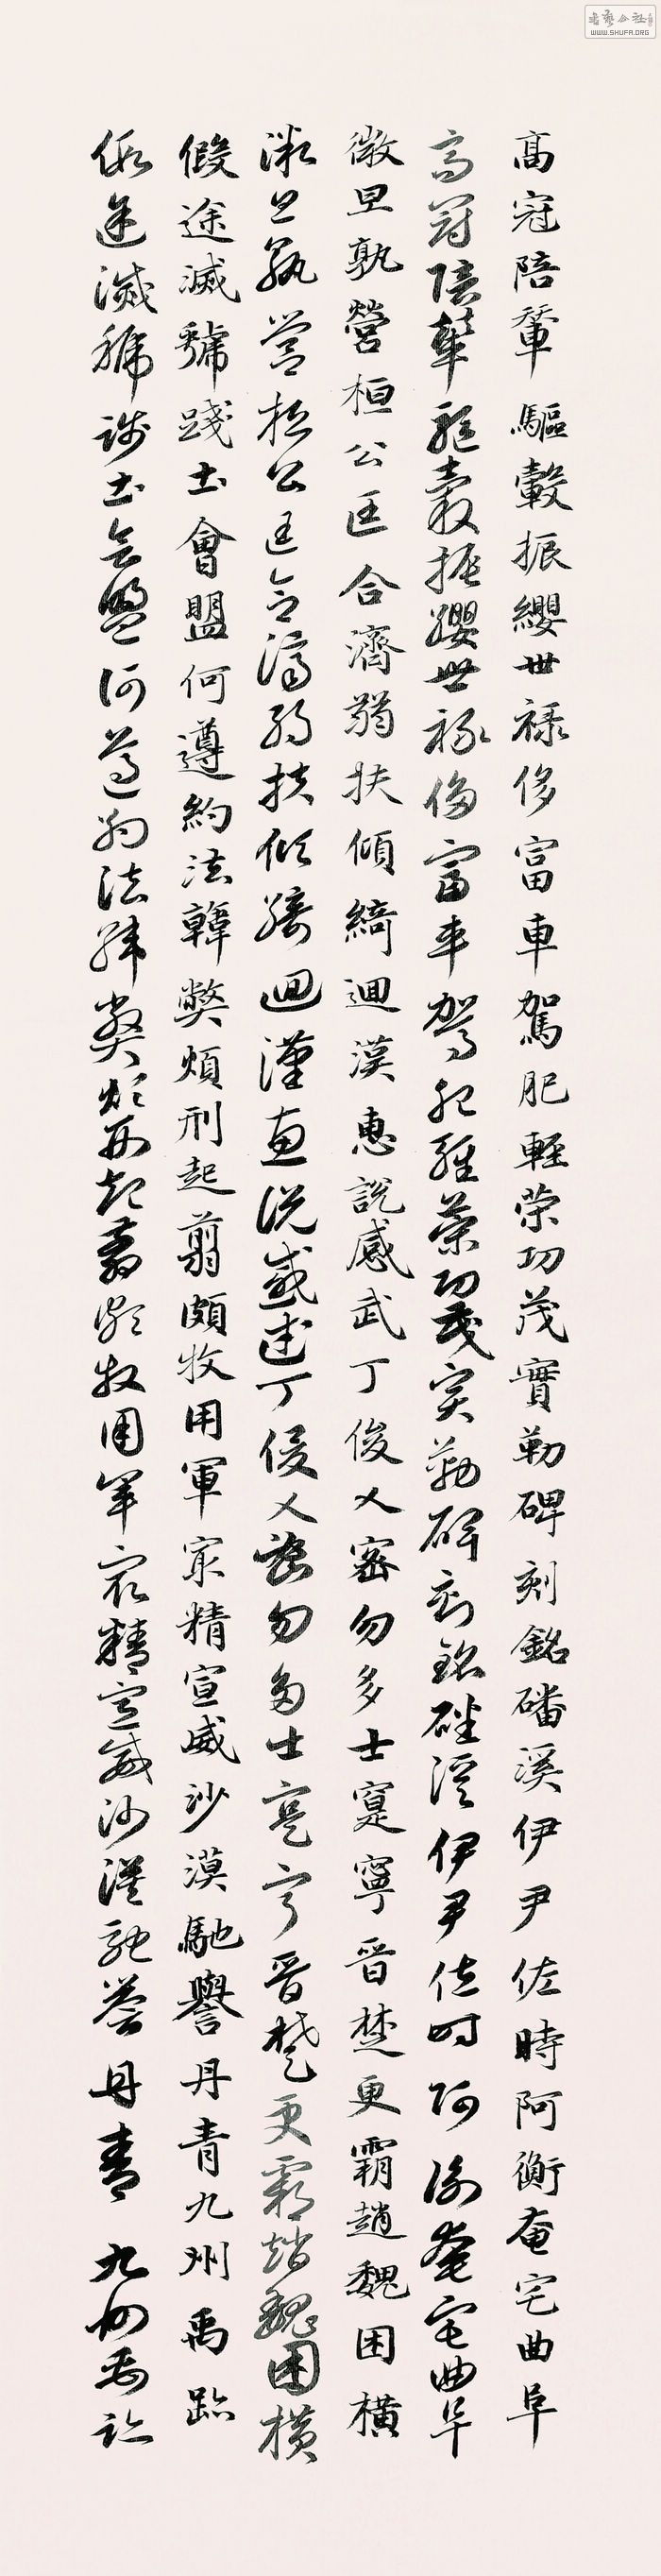 高冠陪輦驅轂振纓世祿侈富車駕肥輕策功茂實勒碑刻銘磻溪伊尹佐時阿衡奄宅曲阜
高冠陪輦驅轂振纓世祿侈富車駕肥輕策功茂實勒碑刻銘磻溪伊尹佐時阿衡奄宅曲阜
微旦孰營桓公匡合濟弱扶傾綺迴漢惠說感武丁俊乂密勿多士寔寧晉楚更霸趙魏困橫
微旦孰營桓公匡合濟弱扶傾綺迴漢惠說感武丁俊乂密勿多士寔寧晉楚更霸趙魏困橫
假途滅虢踐土會盟何遵約法韓弊煩刑起翦頗牧用軍最精宣威沙漠馳譽丹青九州禹跡
假途滅虢踐土會盟何遵約法韓弊煩刑起翦頗牧用軍最精宣威沙漠馳譽丹青九州禹跡
WWW.SHUFA.ORG